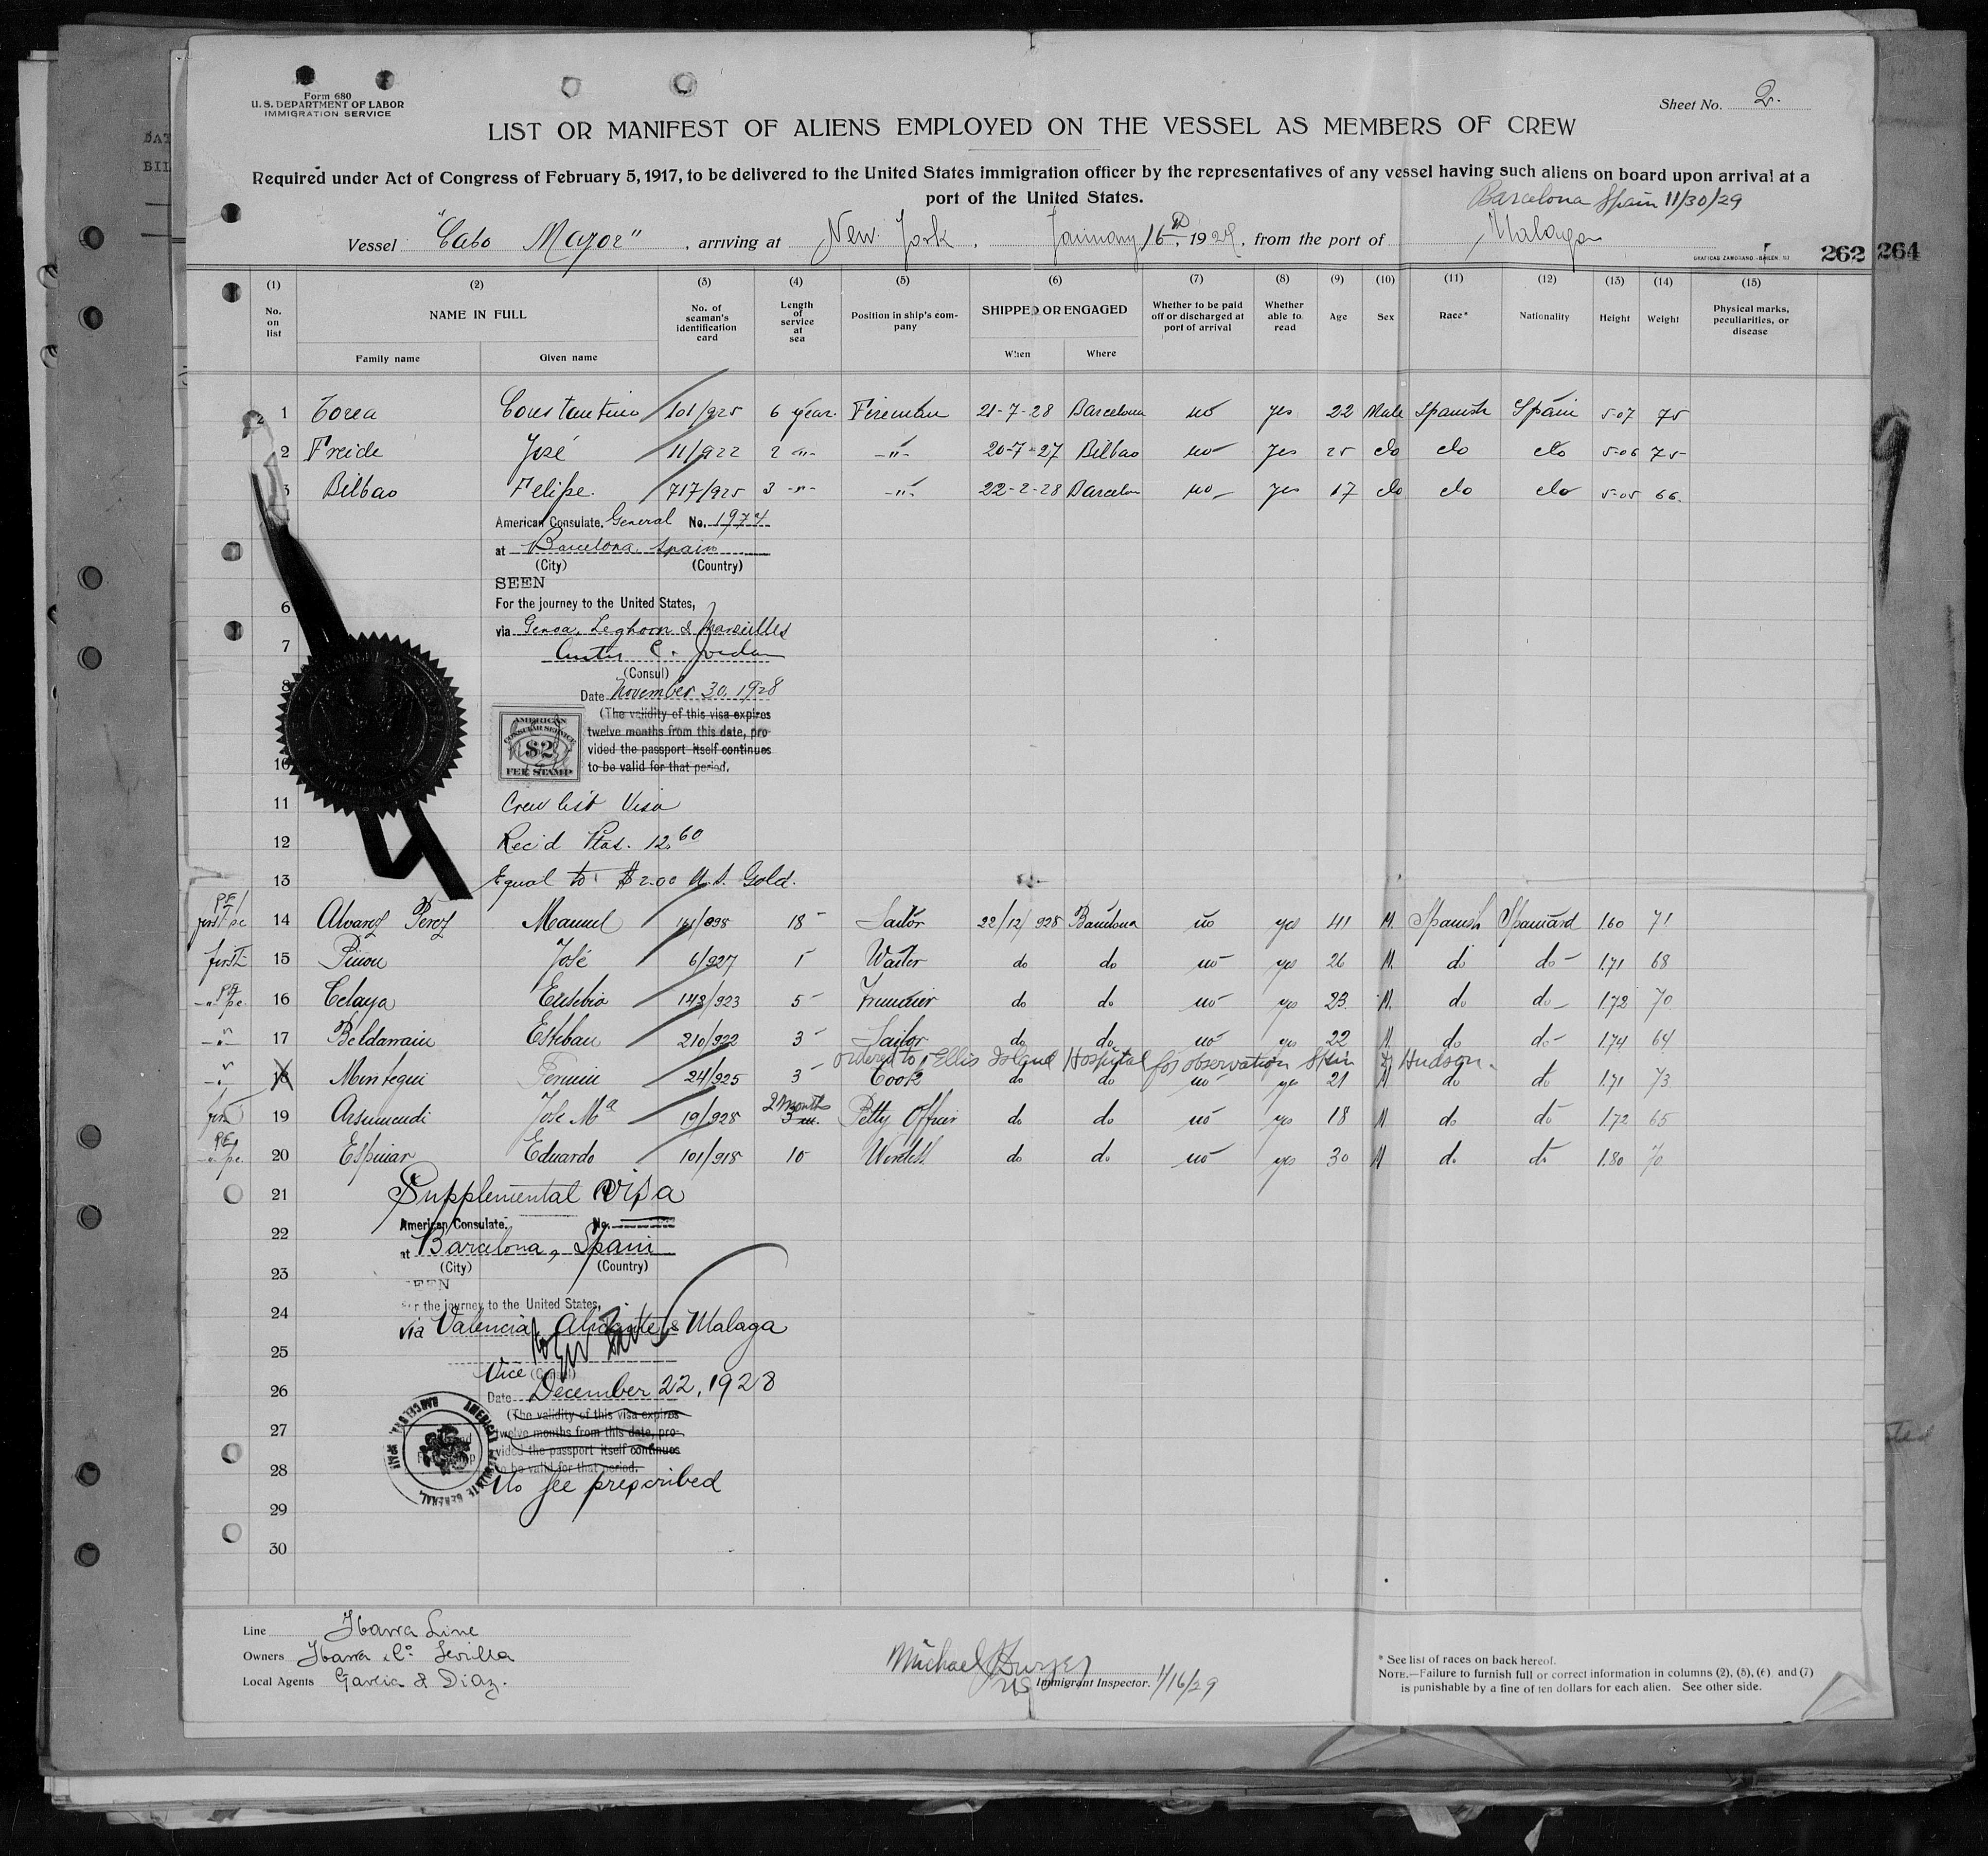 Form 680
U. S. DEPARTMENT OF LABOR
IMMIGRATION SERVICE
Sheet No. 2.
LIST OR MANIFEST OF ALIENS EMPLOYED ON THE VESSEL AS MEMBERS OF CREW
Required under Act of Congress of February 5, 1917, to be delivered to the United States immigration officer by the representatives of any vessel having such aliens on board upon arrival at a
port of the United States.
Barcelona Spain 11/30/29
Vessel "Cabo Mayor", arriving at New York, January 16th, 1929, from the port of Malaga
GRAFICAS ZAMORANO.-BAILEN, 157
262 264
(1) (2) (3) (4) (5) (6) (7) (8) (9) (10) (11) (12) (13) (14) (15)
No. on list NAME IN FULL Family name Given name No. of seaman's identification card Length of service at sea Position in ship's company SHIPPED OR ENGAGED When Where Whether to be paid off or discharged at port of arrival Whether able to read Age Sex Race* Nationality Height Weight Physical marks, peculiarities, or disease
1 Torea Constantino 101/925 6 year. Fireman 21-7-28 Barcelona no yes 22 Male Spanish Spain 5-07 75
2 Freide José 11/922 2 -"- -"- 20-7-27 Bilbao no yes 25 do do do 5-06 75
3 Bilbao Felipe. 717/925 3 -"- -"- 22-2-28 Barcelon no yes 17 do do do 5-05 66.
American Consulate. General No. 1974
at Barcelona Spain
(City) (Country)
SEEN
6 For the journey to the United States,
via Genoa, Leghorn & Marseilles
7 Curtis C. Jordan
(Consul)
8 Date November 30, 1928
(The validity of this visa expires
twelve months from this date, pro-
vided the passport itself continues
10 to be valid for that period.
AMERICAN
CONSULAR SERVICE
$2
FEE STAMP
11 Crew list Visa
12 Rec'd Ptas. 12.60
13 Equal to $2.00 U.S. Gold.
14 Alvarez Perez Manuel 141/898 18 Sailor 22/12/928 Barcelona no yes 41 M. Spanish Spaniard 1.60 71
first 15 Pinon José 6/927 1 Waiter do do no yes 26 M. do do 1.71 68
16 Celaya Eusebio 143/923 5 do do no yes 23. M. do do 1.72 70
17 Beldarrain Esteban 210/922 3 Sailor do do no yes 22 M. do do 1.74 64
ordered to Ellis Island Hospital for observation Hudson.
18 Montequi Fermin 24/925 3 Cook do do no yes 21 M do do 1.71 73
2 Months
first 19 Arsumendi José Ma 19/928 3 m. Petty Officer do do no yes 18 M do do 1.72 65
20 Espinar Eduardo 101/918 10 do do no yes 30 M do do 1.80 70
21 Supplemental Visa
American Consulate. No.
22 at Barcelona, Spain
(City) (Country)
23
24 the journey to the United States,
via Valencia, Alicante & Malaga
25
Vice (Consul)
26 Date December 22, 1928
(The validity of this visa expires
27 twelve months from this date, pro-
vided the passport itself continues
28 to be valid for that period.
No fee prescribed
AMERICAN CONSULATE GENERAL. BARCELONA, SPAIN
29
30
Line Ibarra Line
Owners Ibarra & Co. Sevilla
Local Agents Garcia & Diaz.
Michael
US Immigrant Inspector. 1/16/29
* See list of races on back hereof.
NOTE.—Failure to furnish full or correct information in columns (2), (5), (6) and (7)
is punishable by a fine of ten dollars for each alien. See other side.